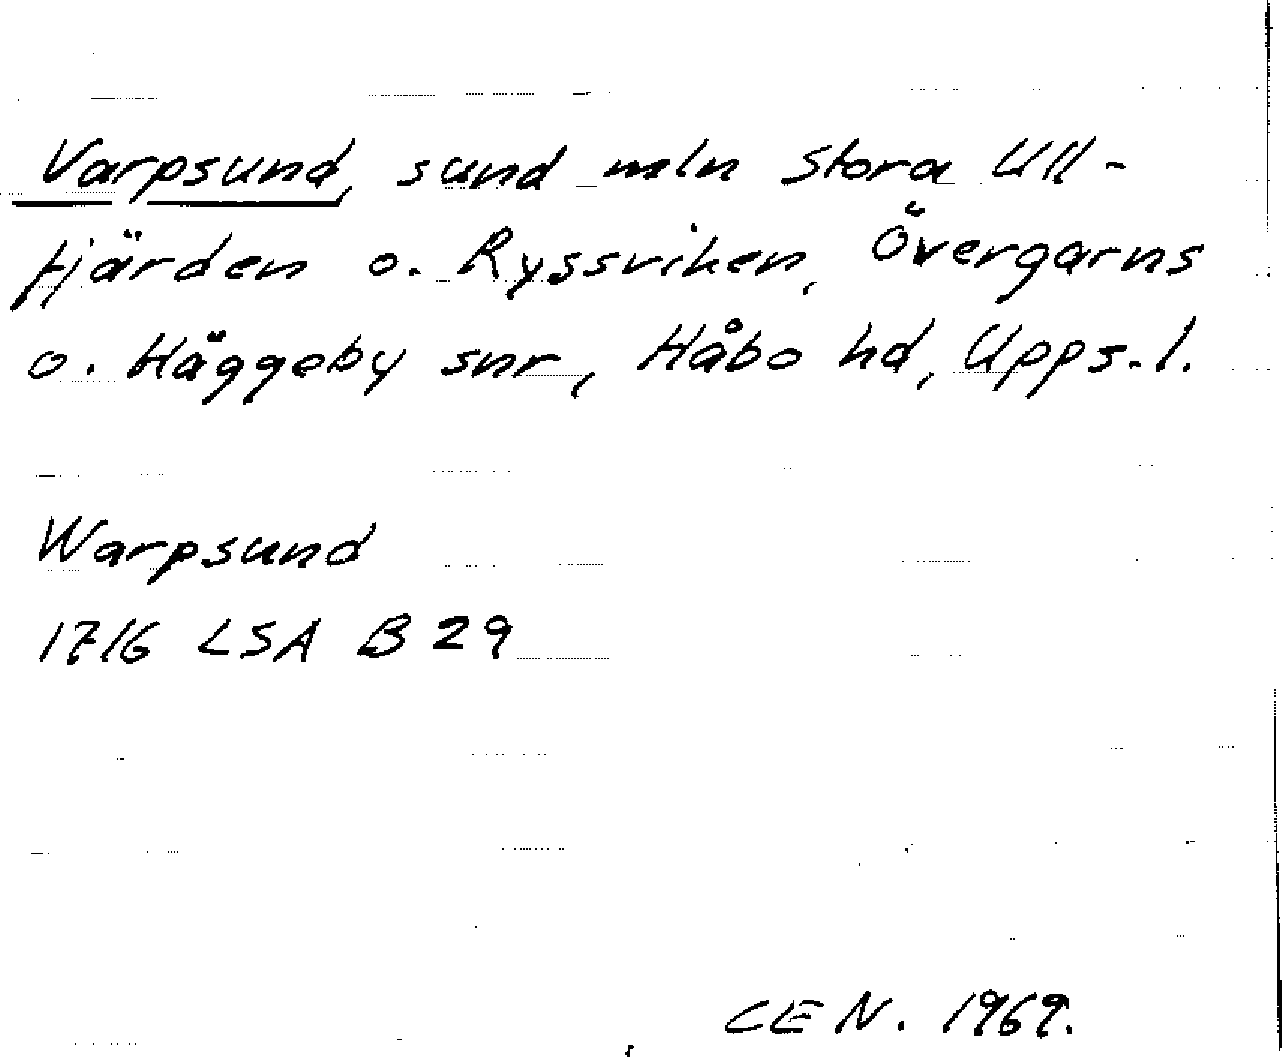 Varpsund, sund mln Stora Ull-
fjärden o. Ryssviken, Övergarns
o. Häggeby snr, Håbo hd, Upps. l.
Warpsund
1716 LSA B 29
CEN. 1969.